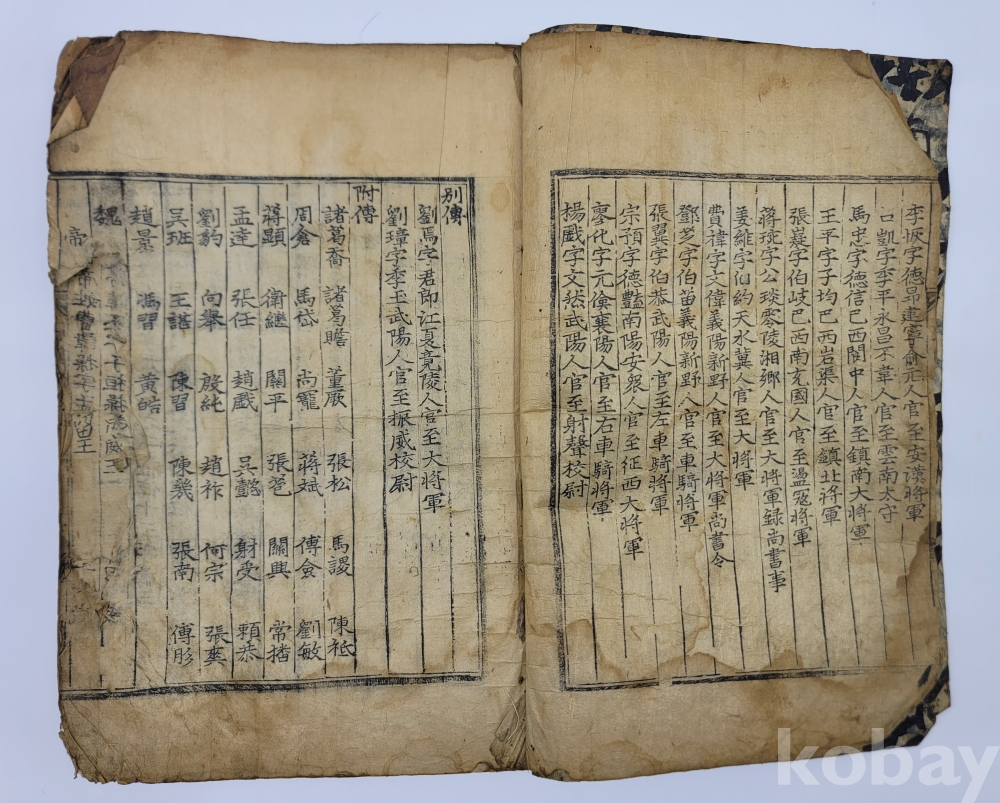 李恢字德昂建寧俞元人官至安漢將軍
口凱字季平永昌不韋人官至雲南太守
馬忠字德信巴西閬中人官至鎮南大將軍
王平字子均巴西岩渠人官至鎮北將軍
張嶷字伯岐巴西南充國人官至盪冦將軍
蔣琬字公琰零陵湘鄉人官至大將軍録尚書事
姜維字伯約天水冀人官至大將軍
費禕字文偉義陽新野人官至大將軍尚書令
鄧芝字伯苗義陽新野人官至車騎將軍
張翼字伯恭武陽人官至左車騎將軍
宗預字德豔南陽安衆人官至征西大將軍
廖化字元儉襄陽人官至右車騎將軍
楊戲字文然武陽人官至射聲校尉
別傳
劉焉字君郎江夏竟陵人官至大將軍
劉璋字季玉武陽人官至振威校尉
附傳
諸葛喬 諸葛瞻 董厥 張松 馬謖 陳祗
周倉 馬岱 尚寵 蔣斌 傅僉 劉敏
蔣顯 衛繼 關平 張苞 關興 常播
孟達 張任 趙戲 吳懿 射受 賴恭
劉豹 向舉 殷純 趙祚 何宗 張爽
吳班 王謀 陳習 陳幾 張南 傅肜
趙累 馮習 黃皓
魏
帝